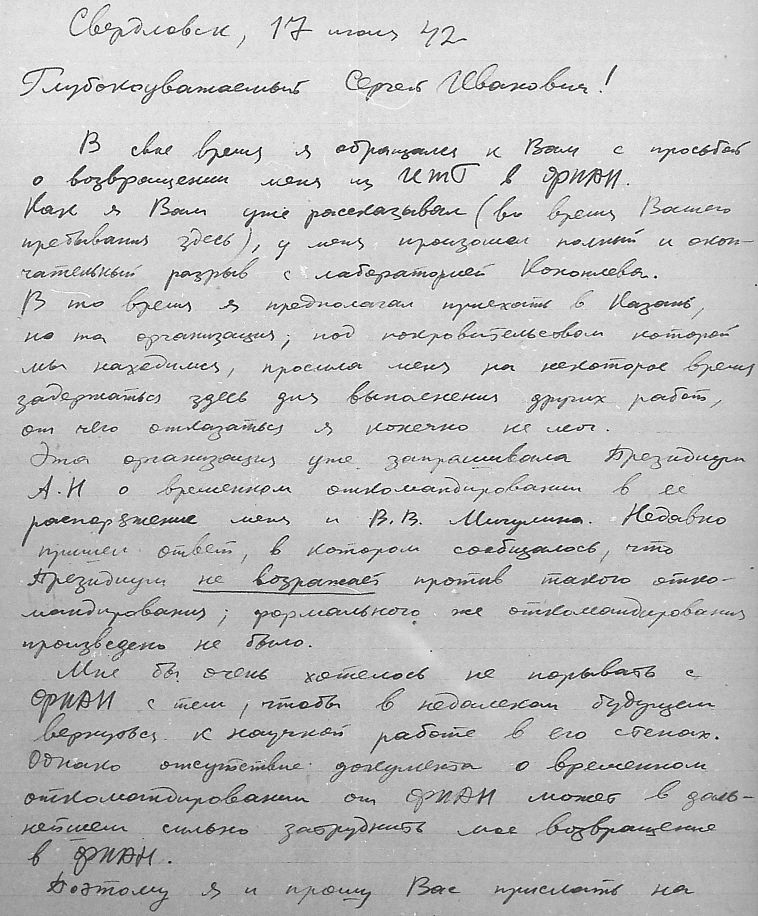 Свердловск, 17 июля 42
Глубокоуважаемый Сергей Иванович!
В свое время я обращался к Вам с просьбой
о возвращении меня из в ФИАН.
Как я Вам уже рассказывал (во время Вашего
пребывания здесь), у меня произошел полный и окон-
чательный разрыв с лабораторией
В то время я предполагал приехать в Казань,
но та организация, под покровительсвом которой
мы находимся, просила меня на некоторое время
задержаться здесь для выполнения других работ,
от чего отказаться я конечно не мог.
Эта организация уже запрашивала Президиум
А.Н о временном откомандировании в ее
распоряжение меня и В.В. Мигулина. Недавно
пришел ответ, в котором сообщалось, что
Президиум не возражает против такого отко-
мандирования; формального же откомандирования
произведено не было.
Мне бы очень хотелось не порывать с
ФИАН с тем, чтобы в недалеком будущем
вернуться к научной работе в его стенах.
Однако отсутствие документа о временном
откомандировании от ФИАН может в даль-
нейшем сильно затруднить мое возвращение
в ФИАН.
Поэтому я и прошу Вас прислать на